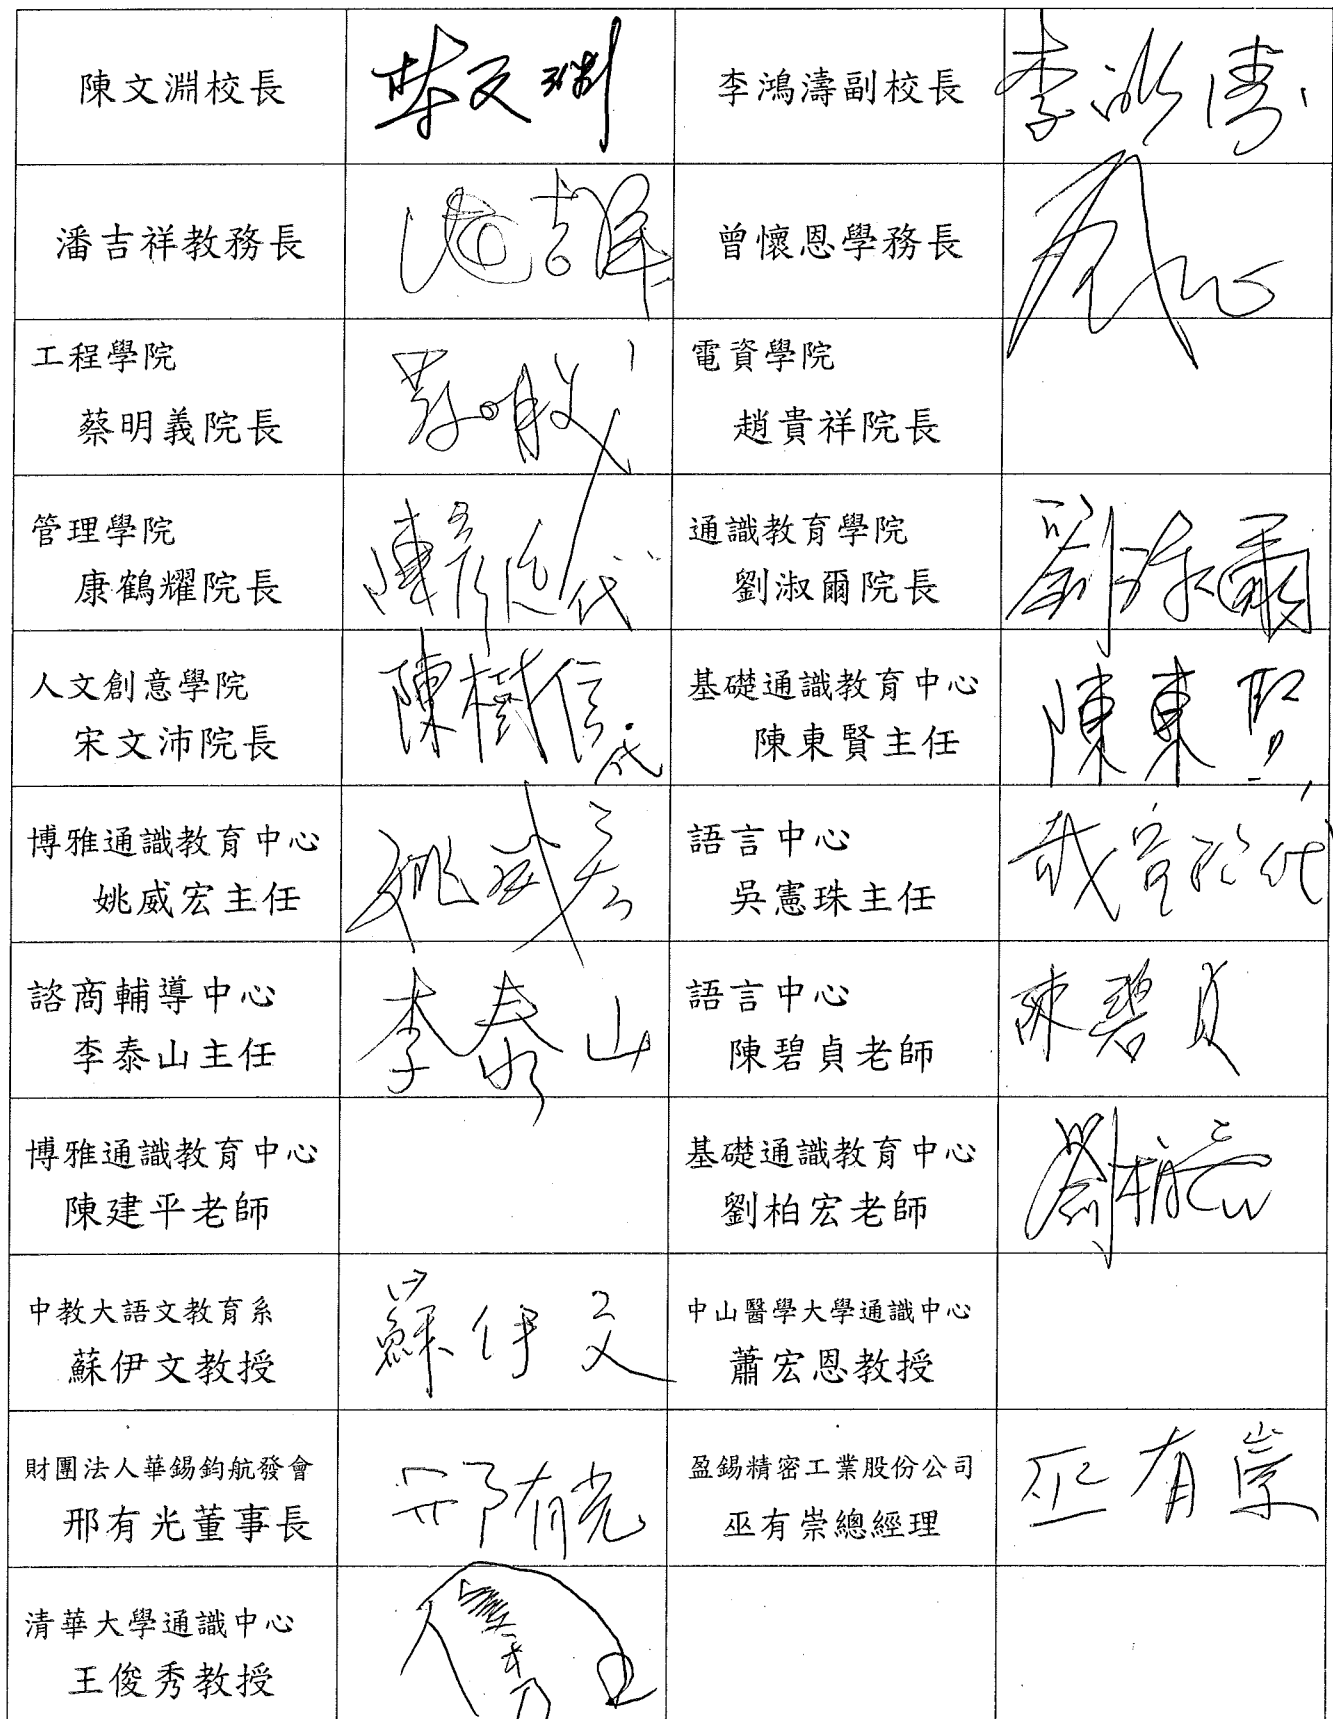 陳文淵校長
陳文淵
李鴻濤副校長
李鴻濤
潘吉祥教務長
潘吉祥
曾懷恩學務長
工程學院
蔡明義院長
蔡明義
電資學院
趙貴祥院長
管理學院
康鶴耀院長
代
通識教育學院
劉淑爾院長
劉淑爾
人文創意學院
宋文沛院長
陳樹信代
基礎通識教育中心
陳東賢主任
陳東賢
博雅通識教育中心
姚威宏主任
姚威宏
語言中心
吳憲珠主任
代
諮商輔導中心
李泰山主任
李泰山
語言中心
陳碧貞老師
陳碧貞
博雅通識教育中心
陳建平老師
基礎通識教育中心
劉柏宏老師
劉柏宏
中教大語文教育系
蘇伊文教授
蘇伊文
中山醫學大學通識中心
蕭宏恩教授
財團法人華錫鈞航發會
邢有光董事長
邢有光
盈錫精密工業股份公司
巫有崇總經理
巫有崇
清華大學通識中心
王俊秀教授